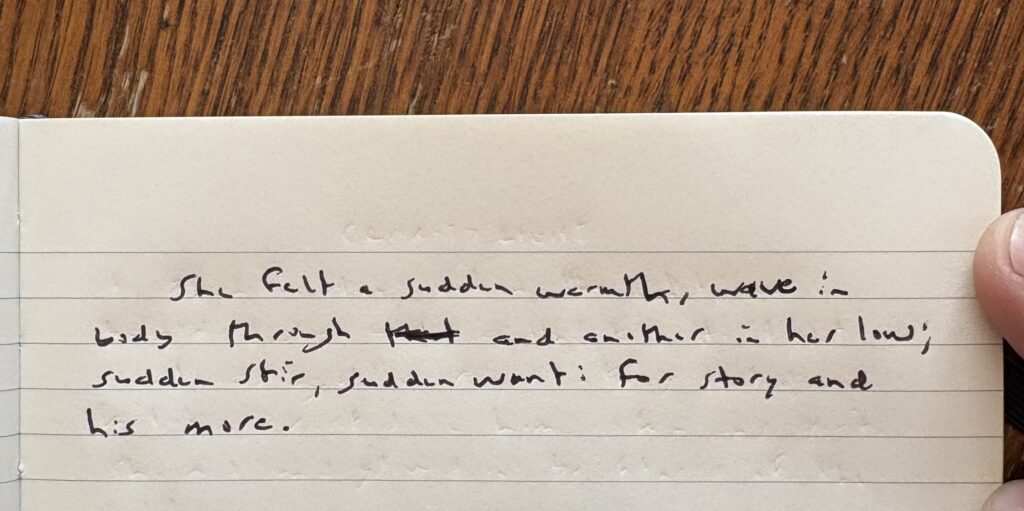 She felt a sudden warmth, wave in
body through and another in her low;
sudden stir, sudden want: for story and
his more.